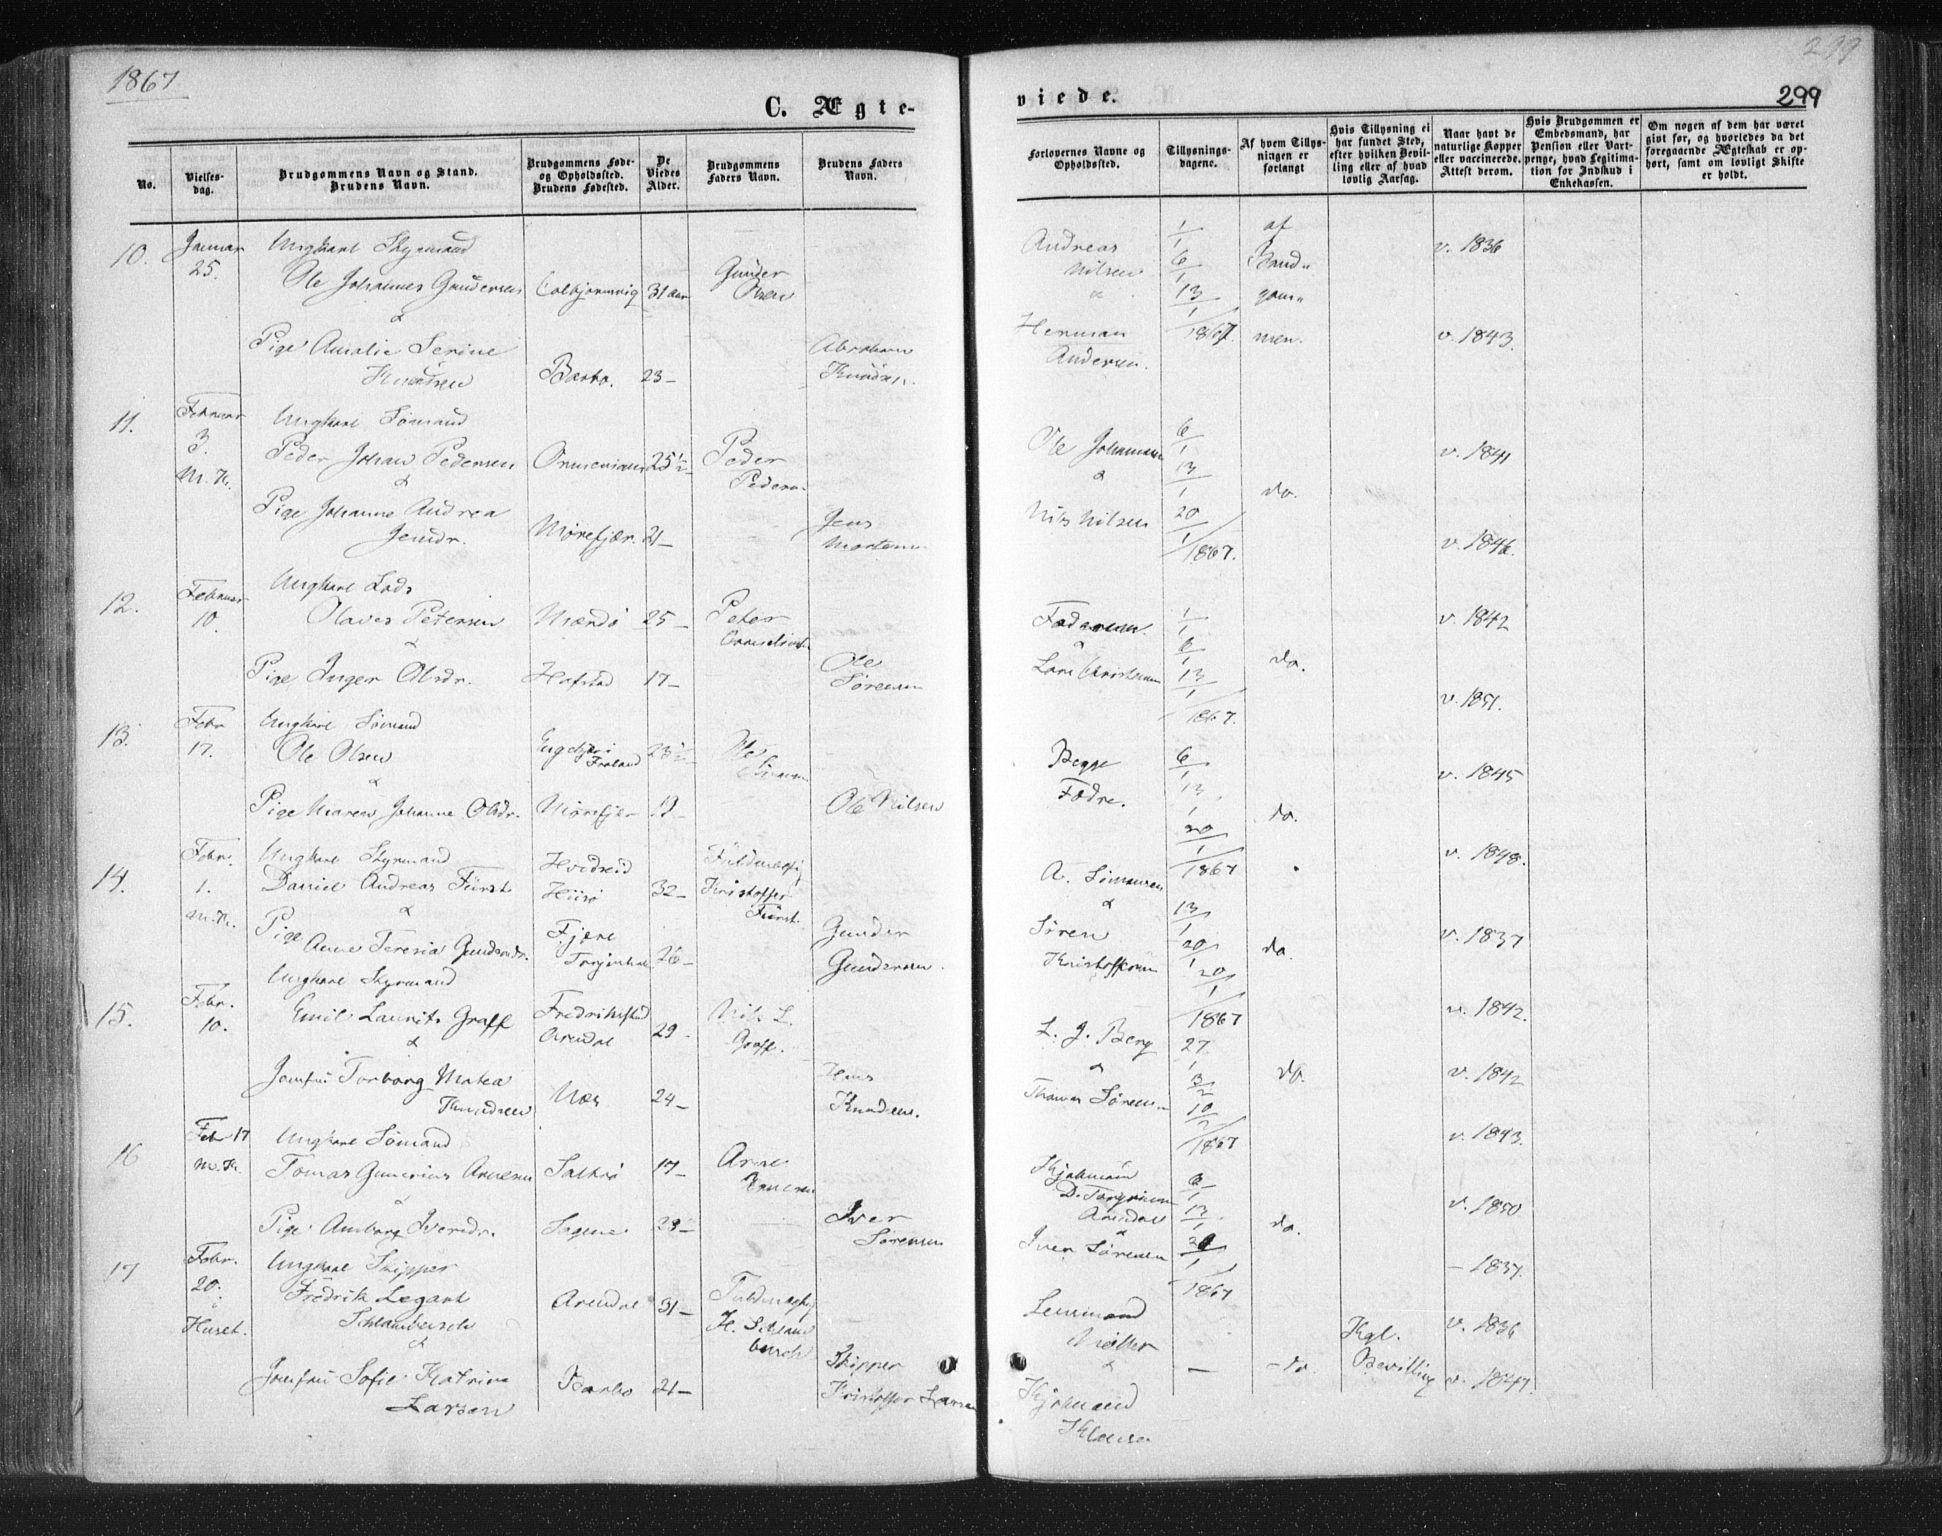 1867
299
299
C. Ægte-
viede.
No.
Vielses-
dag.
Brudgommens Navn og Stand.
Brudens Navn.
Brudgommens Føde-
og Opholdssted.
Brudens Fødested.
De
Viedes
Alder.
Brudgommens
Faders Navn.
Brudens Faders
Navn.
Forlovernes Navne og
Opholdssted.
Tillysnings-
dagene.
Af hvem Tillys-
ningen er
forlangt
Hvis Tillysning ei
har fundet Sted,
efter hvilken Bevil-
ling eller af hvad
lovlig Aarsag.
Naar havt de
naturlige Kopper
eller vaccinerede.
Attest derom.
Hvis Brudgommen er
Embedsmand, har
Pension eller Vart-
penge, hvad Legitima-
tion for Indskud i
Enkekassen.
Om nogen af dem har været
gift før, og hvorledes da det
foregaaende Ægteskab er op-
hørt, samt om lovligt Skifte
er holdt.
10.
Januar
25.
Ungkarl Styrmand
Ole Johannes Gundersen
Colbjørnsvig
31 aar
Gunder
Olsen
&
Pige Amalie Serine
Knudsen
Barbo.
23-
Abraham
Knudsen.
Andreas
Nilsen
&
Herman
Andersen.
1/1
6/1
13/1
1867.
af
Brud-
gom-
men.
v. 1836
v. 1843.
11.
Februar
3.
M. K.
Ungkarl Sømand
Peder Johan Pedersen
25 1/2
Peder
Peders.
&
Pige Johanne Andrea
Jensdr.
Mørefjær.
21-
Jens
Mortensen
Ole Johannesen
&
Nils Nilsen
6/1
13/1
20/1
1867.
do.
v. 1841
v. 1846.
12.
Februar
10.
Ungkarl Lods
Olaves Petersen
Mærdø
25-
Peter
&
Pige Inger Olsdr.
Hafstad
17-
Ole
Sørensen
Faderen.
&
Lars Christensen
1/1
6/1
13/1
1867.
do.
v. 1842
v. 1851.
13.
Febr
17.
Ungkarl Sømand
Ole Olsen
Froland
23 1/2
Ole
&
Pige Maren Johanne Olsdr.
Mørefjær
19-
Ole Nilsen
Begge
Fædre.
6/1
13/1
20/1
1867
do.
v. 1845
v. 1848.
14.
Febr.
1.
M. K.
Ungkarl Styrmand
Daniel Andreas Fürst
Hvidesid
Hiisø
32-
Fuldmægtig
Kristoffer
Fürst.
&
Pige
Anne Teresia Gundersdr.
Fjære
26-
Gunder
Gundersen.
A. Simonsen
&
Søren
Kristoffersen
13/1
20/1
20/1
1867
do.
v. 1837
v. 1842.
15.
Febr.
10.
Ungkarl Styrmand
Emil Laurits Graff
Fredrikstad
Arendal
29-
Nils L.
Graff.
&
Jomfru Torborg Matea
Knudsen
Næs
24-
Hans
Knudsen.
L. J. Berg
&
Thomas Sørensen
27/1
3/2
10/2
1867
do.
v. 1842
v. 1843.
16
Febr 17
M. K.
Ungkarl Sømand
Tomas Gunerius Arnesen
Saltrø
17-
Arne
&
Pige Amborg Iversdr.
Sagene
23-
Iver
Sørensen
Kjøbmand
Arendal
&
Iver Sørensen
6/1
13/1
20/1
1867
do.
v. 1850
- 1837.
17
Febr.
20.
i
Huset.
Ungkarl Skipper
Fredrik Legant
Schlanbusch
Arendal
31-
Fuldmægtig
H. Schlan
busch
&
Jomfru Sofie Katrine
Larsen
Barbo
21-
Skipper
Kristoffer Larsen
Møller
&
Kjøbmand
Klausen
-
- do
Kgl.
Bevilling
v. 1836
v. 1847.